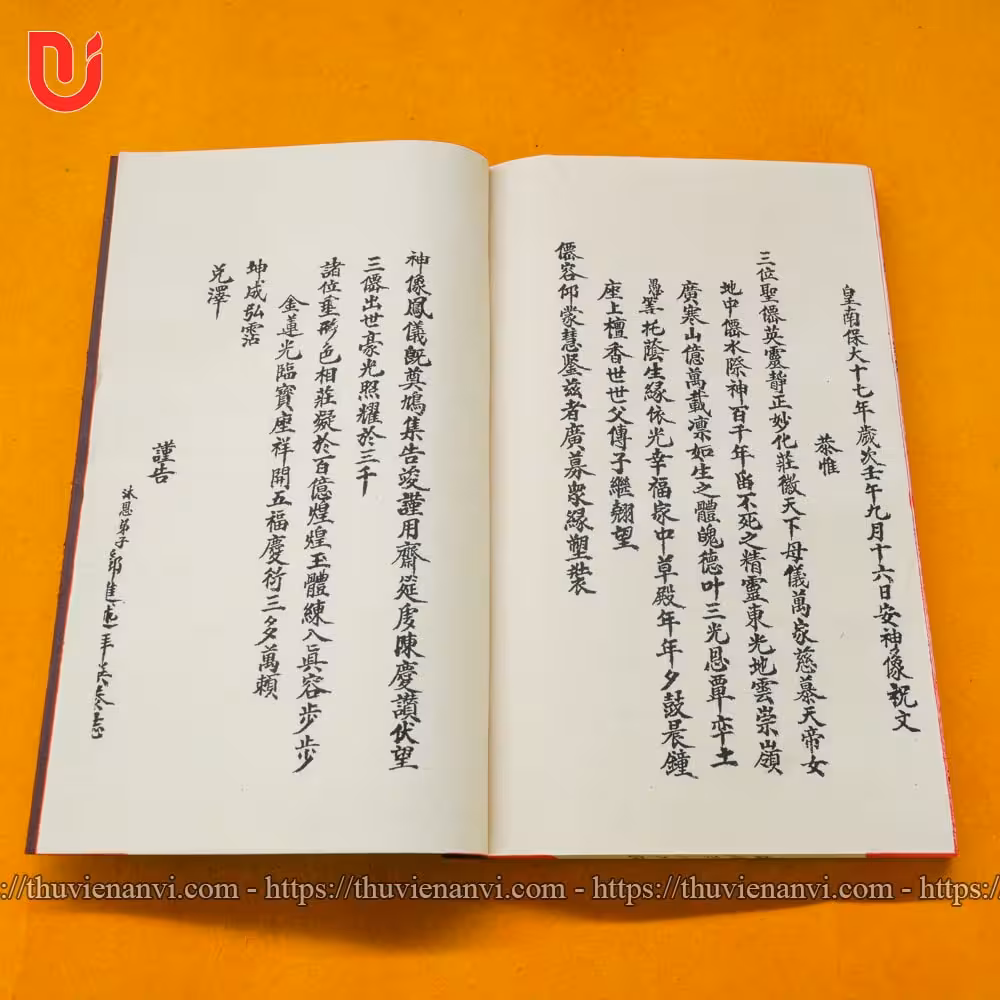 皇南保大十七年歲次壬午九月十六日安神像祝文
恭惟
三位聖僊英靈靜正妙化莊徽天下母儀萬家慈慕天帝女
地中僊水際神百千年留不死之精靈東光地雲崇山嶺
廣寒山億萬載凛如生之體魄德叶三光恩覃率土
愚等托蔭生緣依光幸福家中草殿年年夕鼓晨鐘
座上檀香世世父傳子繼翹望
僊容仰蒙慧鉴茲者廣募衆緣塑裝
神像鳳儀既奠鳩集告竣謹用齋筵虔陳慶讃伏望
三僊出世豪光照耀於三千
諸位垂形色相莊凝於百億煌煌玉體練入眞容步步
金蓮光臨寶座祥開五福慶衍三多萬賴
坤成弘霑
兌澤
謹告
沐恩弟子
://thuvienanvi.com - https://thuvienanvi.com - https://thuvienanvi.com - https://